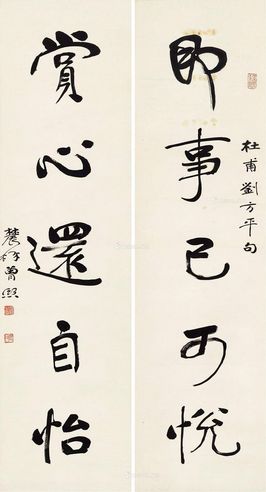 即事已可悅
杜甫劉方平句
賞心還自怡
農髯曾熙